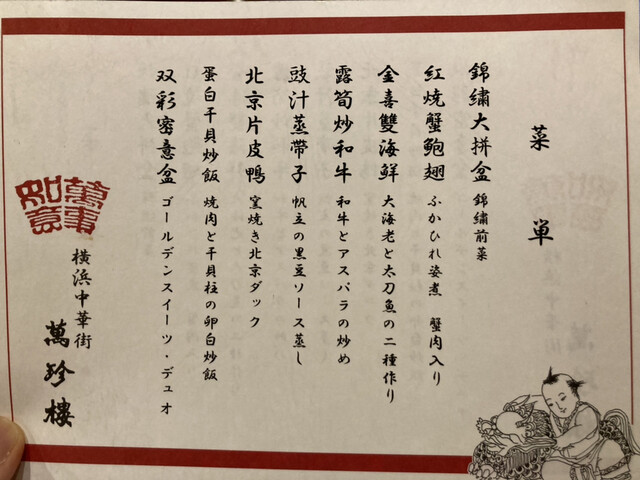 菜単
錦繡大拼盆 錦繡前菜
紅焼蟹鮑翅 ふかひれ姿煮 蟹肉入り
金喜雙海鮮 大海老と太刀魚の二種作り
露筍炒和牛 和牛とアスパラの炒め
豉汁蒸帶子 帆立の黒豆ソース蒸し
北京片皮鴨 窯焼き北京ダック
蛋白干貝炒飯 焼肉と干貝柱の卵白炒飯
双彩蜜意盒 ゴールデンスイーツ・デュオ
萬事如意
横浜中華街
萬珍樓